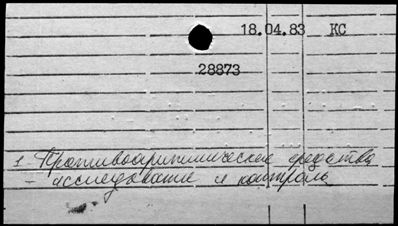 18.04.83 КС
28873
1. Противоаритмические средства
- исследование и контроль